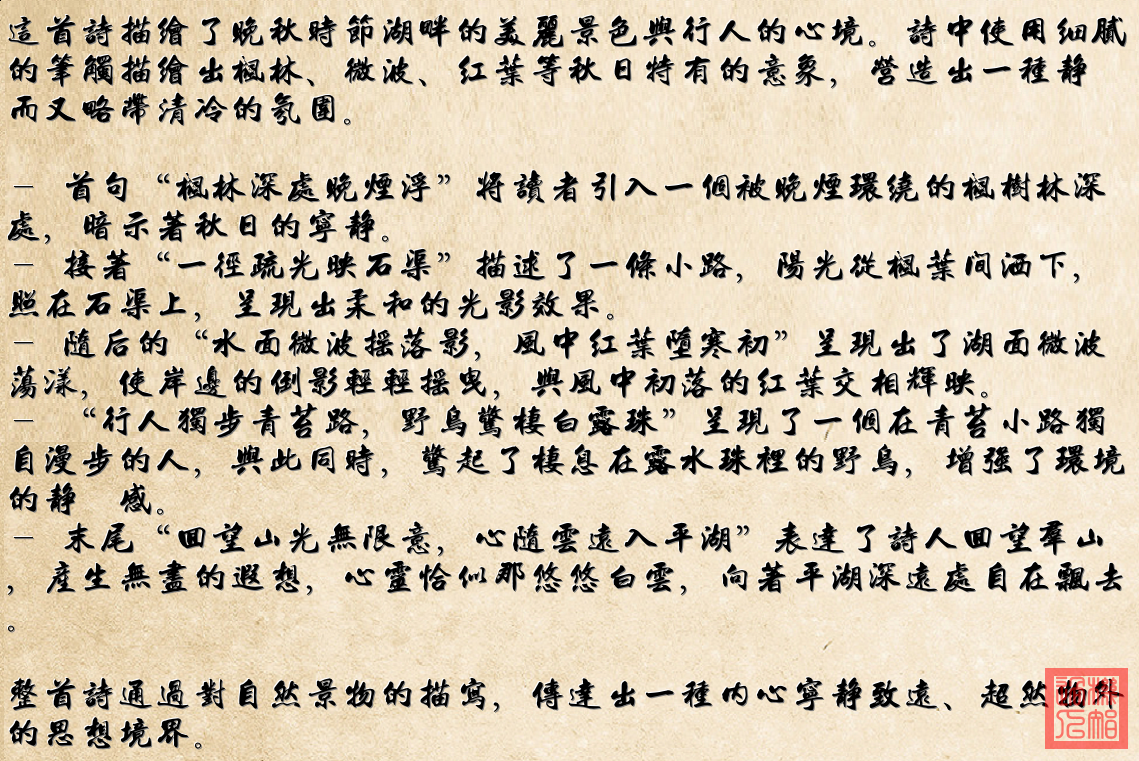 這首詩描繪了晚秋時節湖畔的美麗景色與行人的心境。詩中使用細膩
的筆觸描繪出楓林、微波、紅葉等秋日特有的意象，營造出一種靜
而又略帶清冷的氛圍。
- 首句“楓林深處晚煙浮”將讀者引入一個被晚煙環繞的楓樹林深
處，暗示著秋日的寧靜。
- 接著“一徑疏光映石渠”描述了一條小路，陽光從楓葉间洒下，
照在石渠上，呈現出柔和的光影效果。
- 隨后的“水面微波搖落影，風中紅葉墮寒初”呈現出了湖面微波
蕩漾，使岸邊的倒影輕輕搖曳，與風中初落的紅葉交相輝映。
- “行人獨步青苔路，野鳥驚棲白露珠”呈現了一個在青苔小路獨
自漫步的人，與此同時，驚起了棲息在露水珠裡的野鳥，增强了環境
的静 感。
- 末尾“回望山光無限意，心隨雲遠入平湖”表達了詩人回望羣山
，產生無盡的遐想，心靈恰似那悠悠白雲，向著平湖深遠處自在飄去
。
整首詩通過對自然景物的描寫，傳達出一種内心寧静致遠、超然物外
的思想境界。